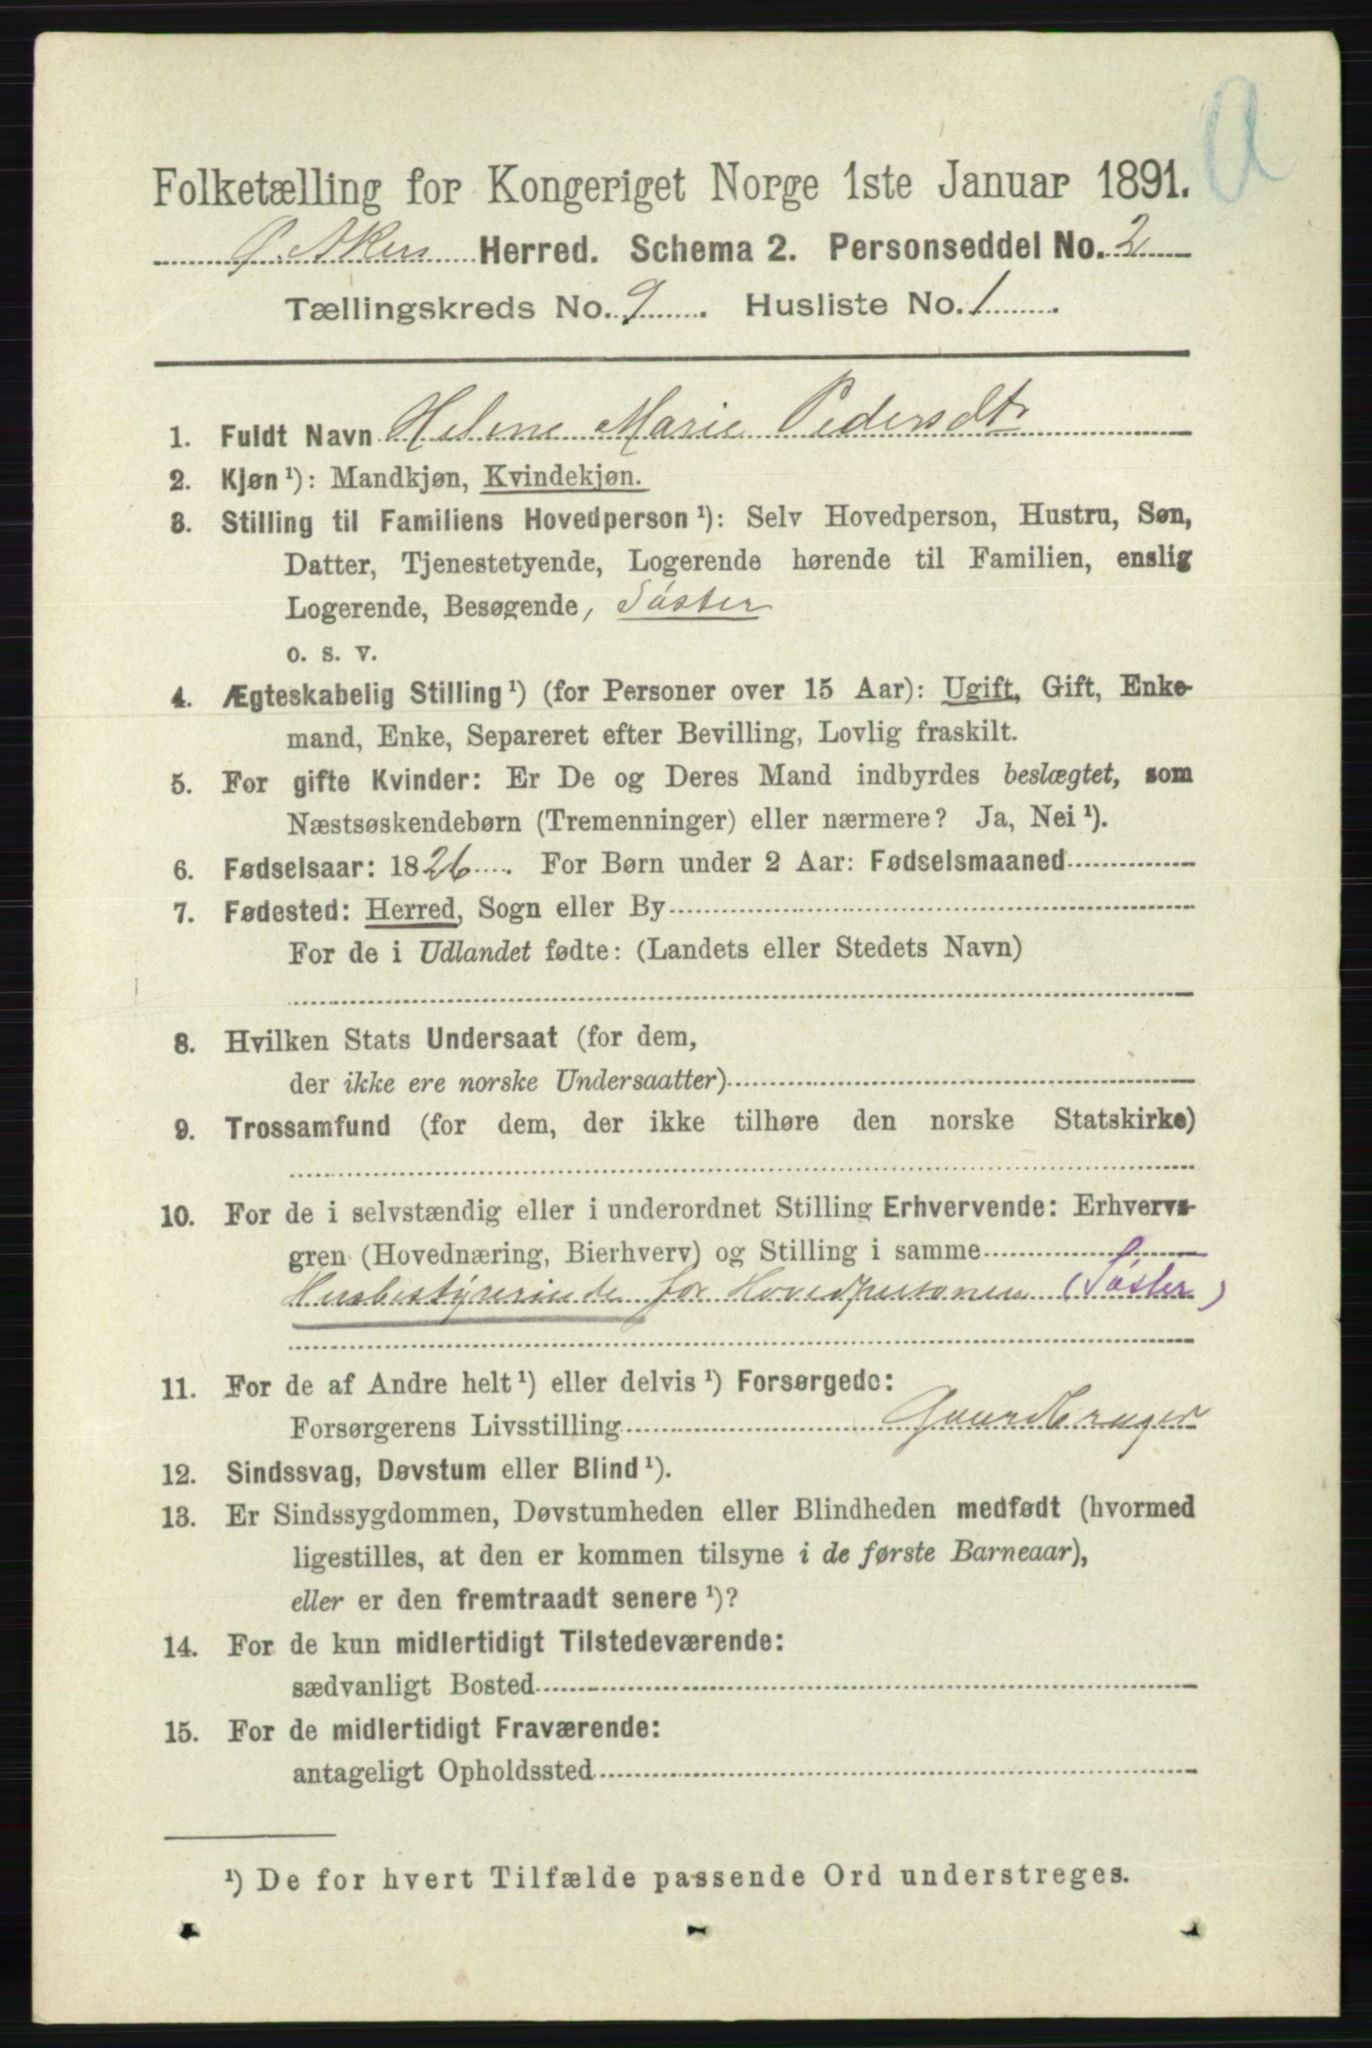 a
Folketælling for Kongeriget Norge 1ste Januar 1891.
Ø. Akers Herred. Schema 2. Personseddel No. 2
Tællingskreds No. 9. Husliste No. 1.
1. Fuldt Navn Helene Marie Pedersdtr
2. Kjøn ¹): Mandkjøn, Kvindekjøn.
3. Stilling til Familiens Hovedperson ¹): Selv Hovedperson, Hustru, Søn,
Datter, Tjenestetyende, Logerende hørende til Familien, enslig
Logerende, Besøgende, Søster
o. s. v.
4. Ægteskabelig Stilling ¹) (for Personer over 15 Aar): Ugift, Gift, Enke-
mand, Enke, Separeret efter Bevilling, Lovlig fraskilt.
5. For gifte Kvinder: Er De og Deres Mand indbyrdes beslægtet, som
Næstsøskendebørn (Tremenninger) eller nærmere? Ja, Nei ¹).
6. Fødselsaar: 1826. For Børn under 2 Aar: Fødselsmaaned
7. Fødested: Herred, Sogn eller By
For de i Udlandet fødte: (Landets eller Stedets Navn)
8. Hvilken Stats Undersaat (for dem,
der ikke ere norske Undersaatter)
9. Trossamfund (for dem, der ikke tilhøre den norske Statskirke)
10. For de i selvstændig eller i underordnet Stilling Erhvervende: Erhvervs-
gren (Hovednæring, Bierhverv) og Stilling i samme
Husbestyrerinde for Hovedpersonen (Søster)
11. For de af Andre helt ¹) eller delvis ¹) Forsørgede:
Forsørgerens Livsstilling Gaardbruger
12. Sindssvag, Døvstum eller Blind ¹).
13. Er Sindssygdommen, Døvstumheden eller Blindheden medfødt (hvormed
ligestilles, at den er kommen tilsyne i de første Barneaar),
eller er den fremtraadt senere ¹)?
14. For de kun midlertidigt Tilstedeværende:
sædvanligt Bosted
15. For de midlertidigt Fraværende:
antageligt Opholdssted
¹) De for hvert Tilfælde passende Ord understreges.